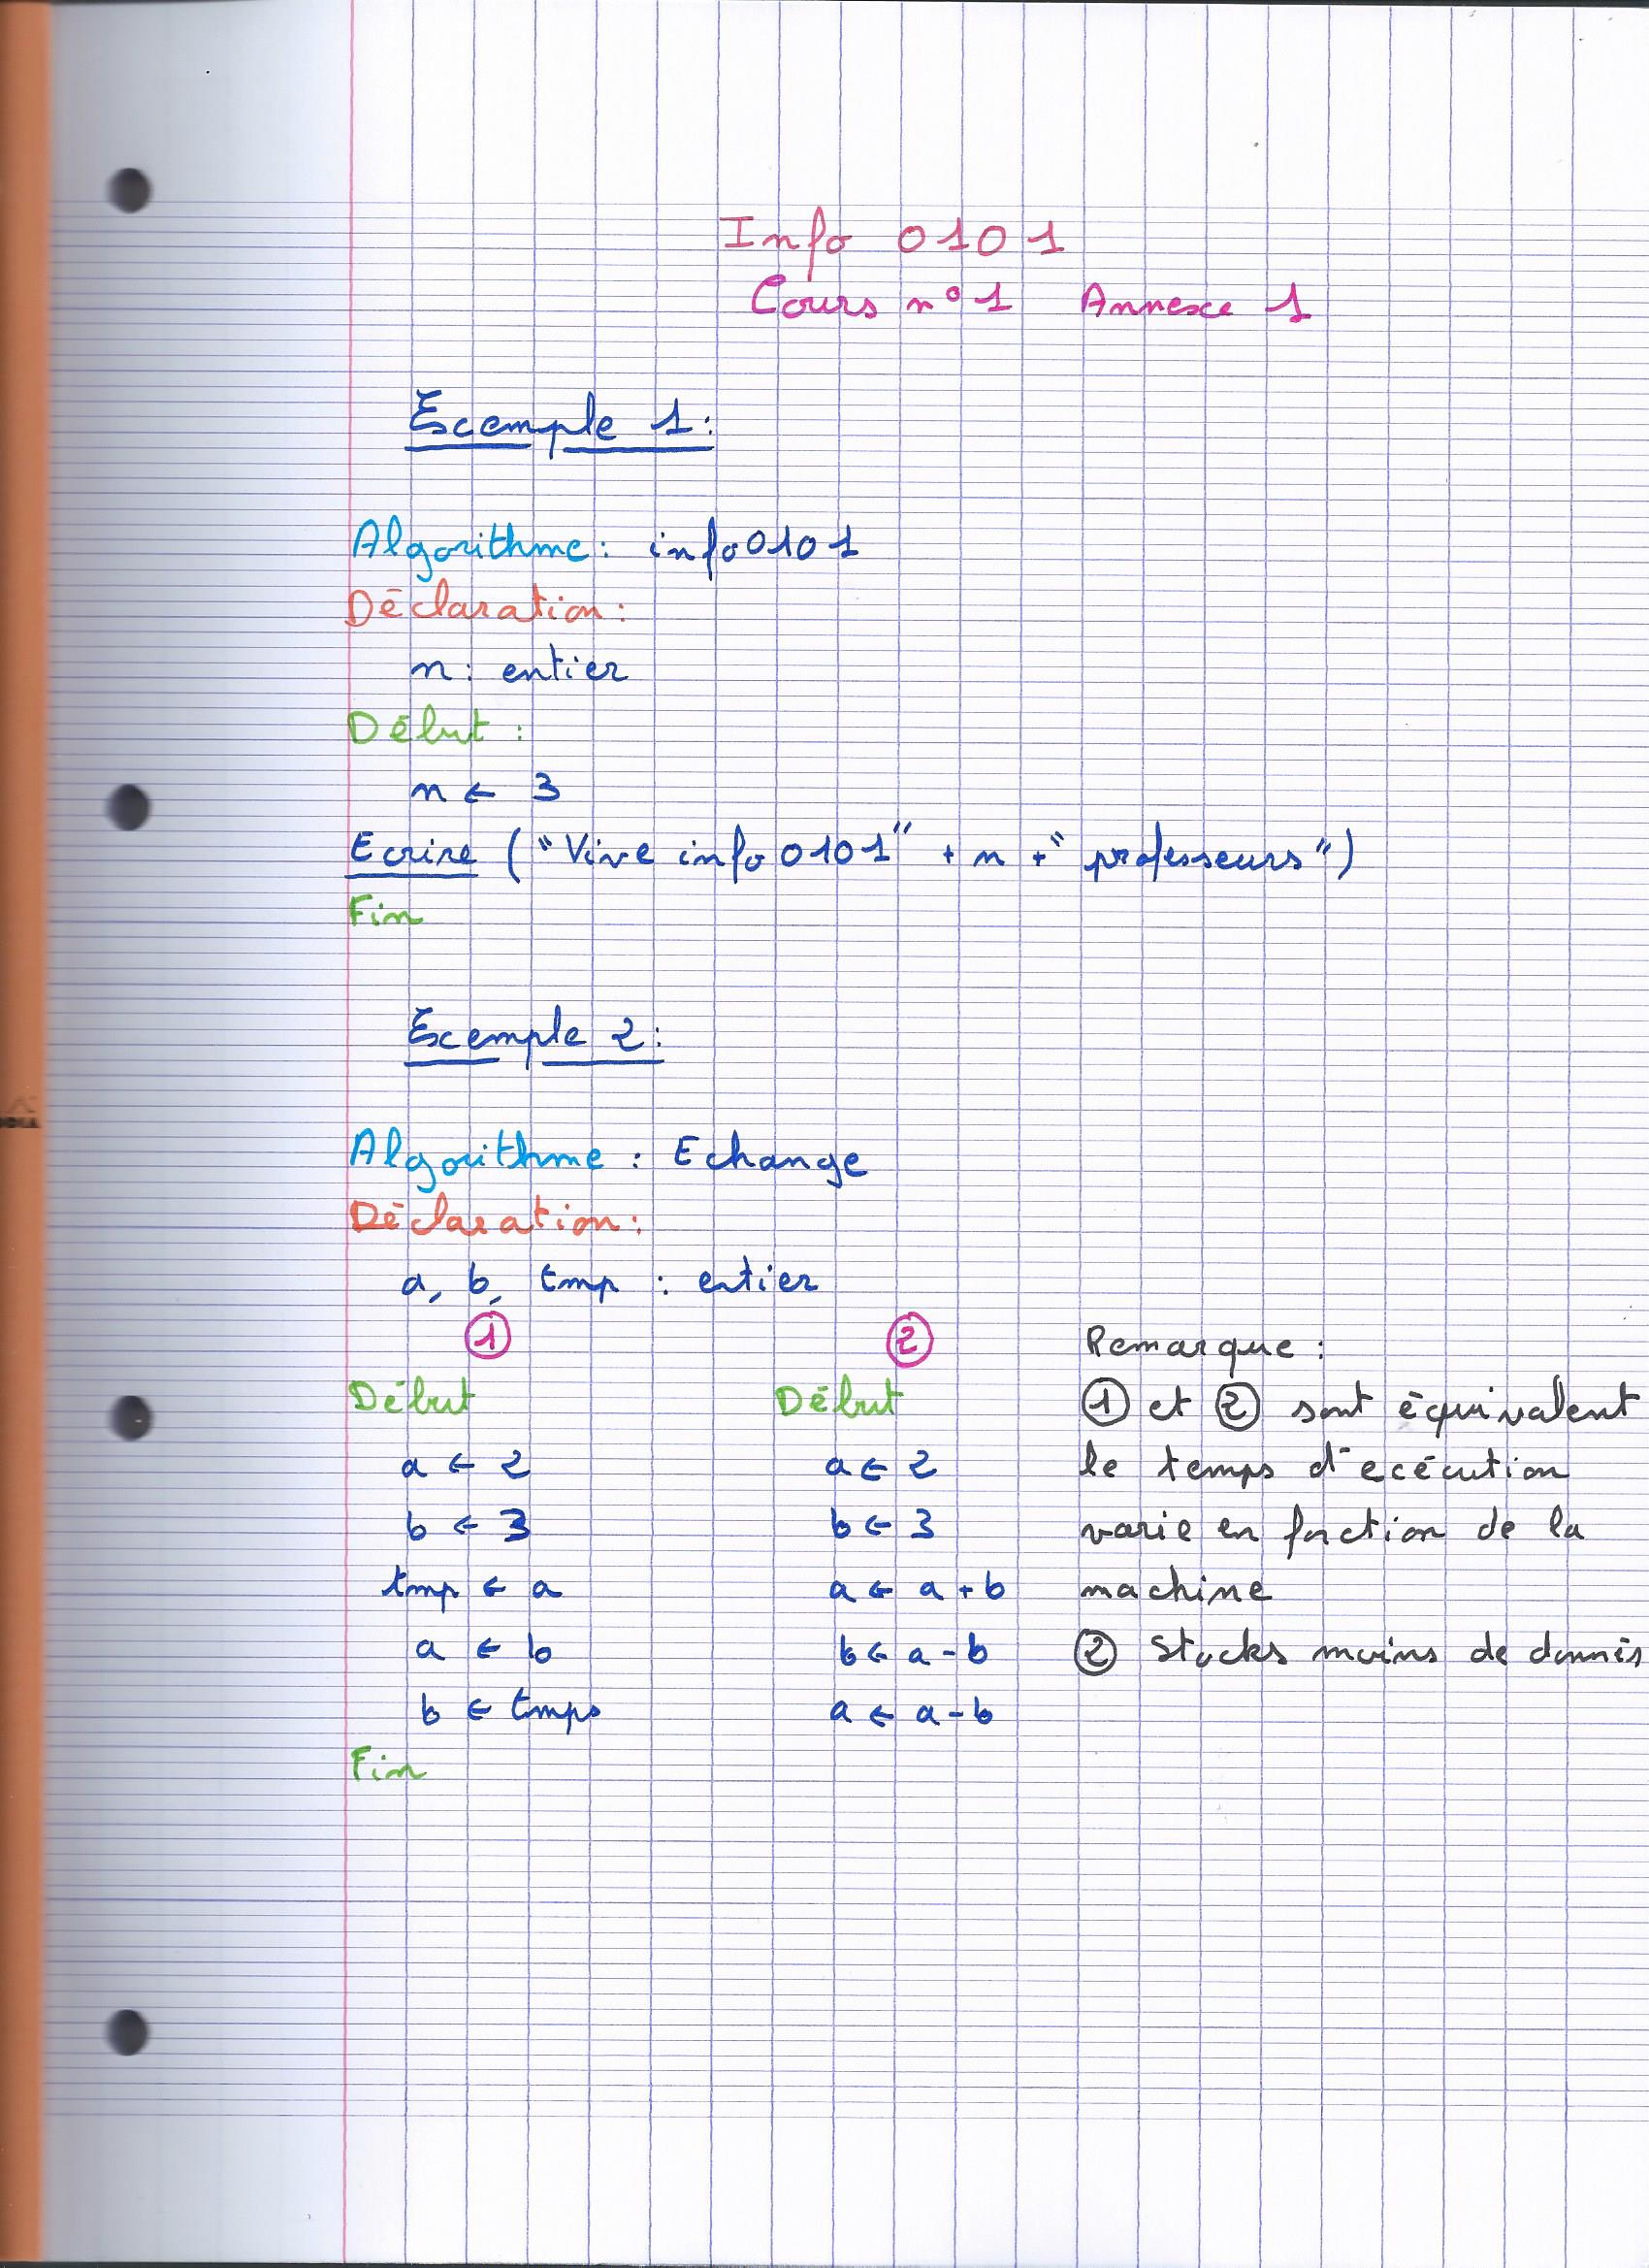 Info 0101
Cours n°1 Annexe 1
Exemple 1:
Algorithme: info0101
Déclaration:
n: entier
Début :
n ← 3
Ecrire ("Vive info0101" + n + " professeurs")
Fin
Exemple 2:
Algorithme : Echange
Déclaration:
a, b, tmp : entier
①
Début
a ← 2
b ← 3
tmp ← a
a ← b
b ← tmps
Fin
②
Début
a ← 2
b ← 3
a ← a + b
b ← a - b
a ← a - b
Remarque :
① et ② sont équivalent
le temps d'ecécution
varie en fonction de la
machine
② Stocks moins de donnés